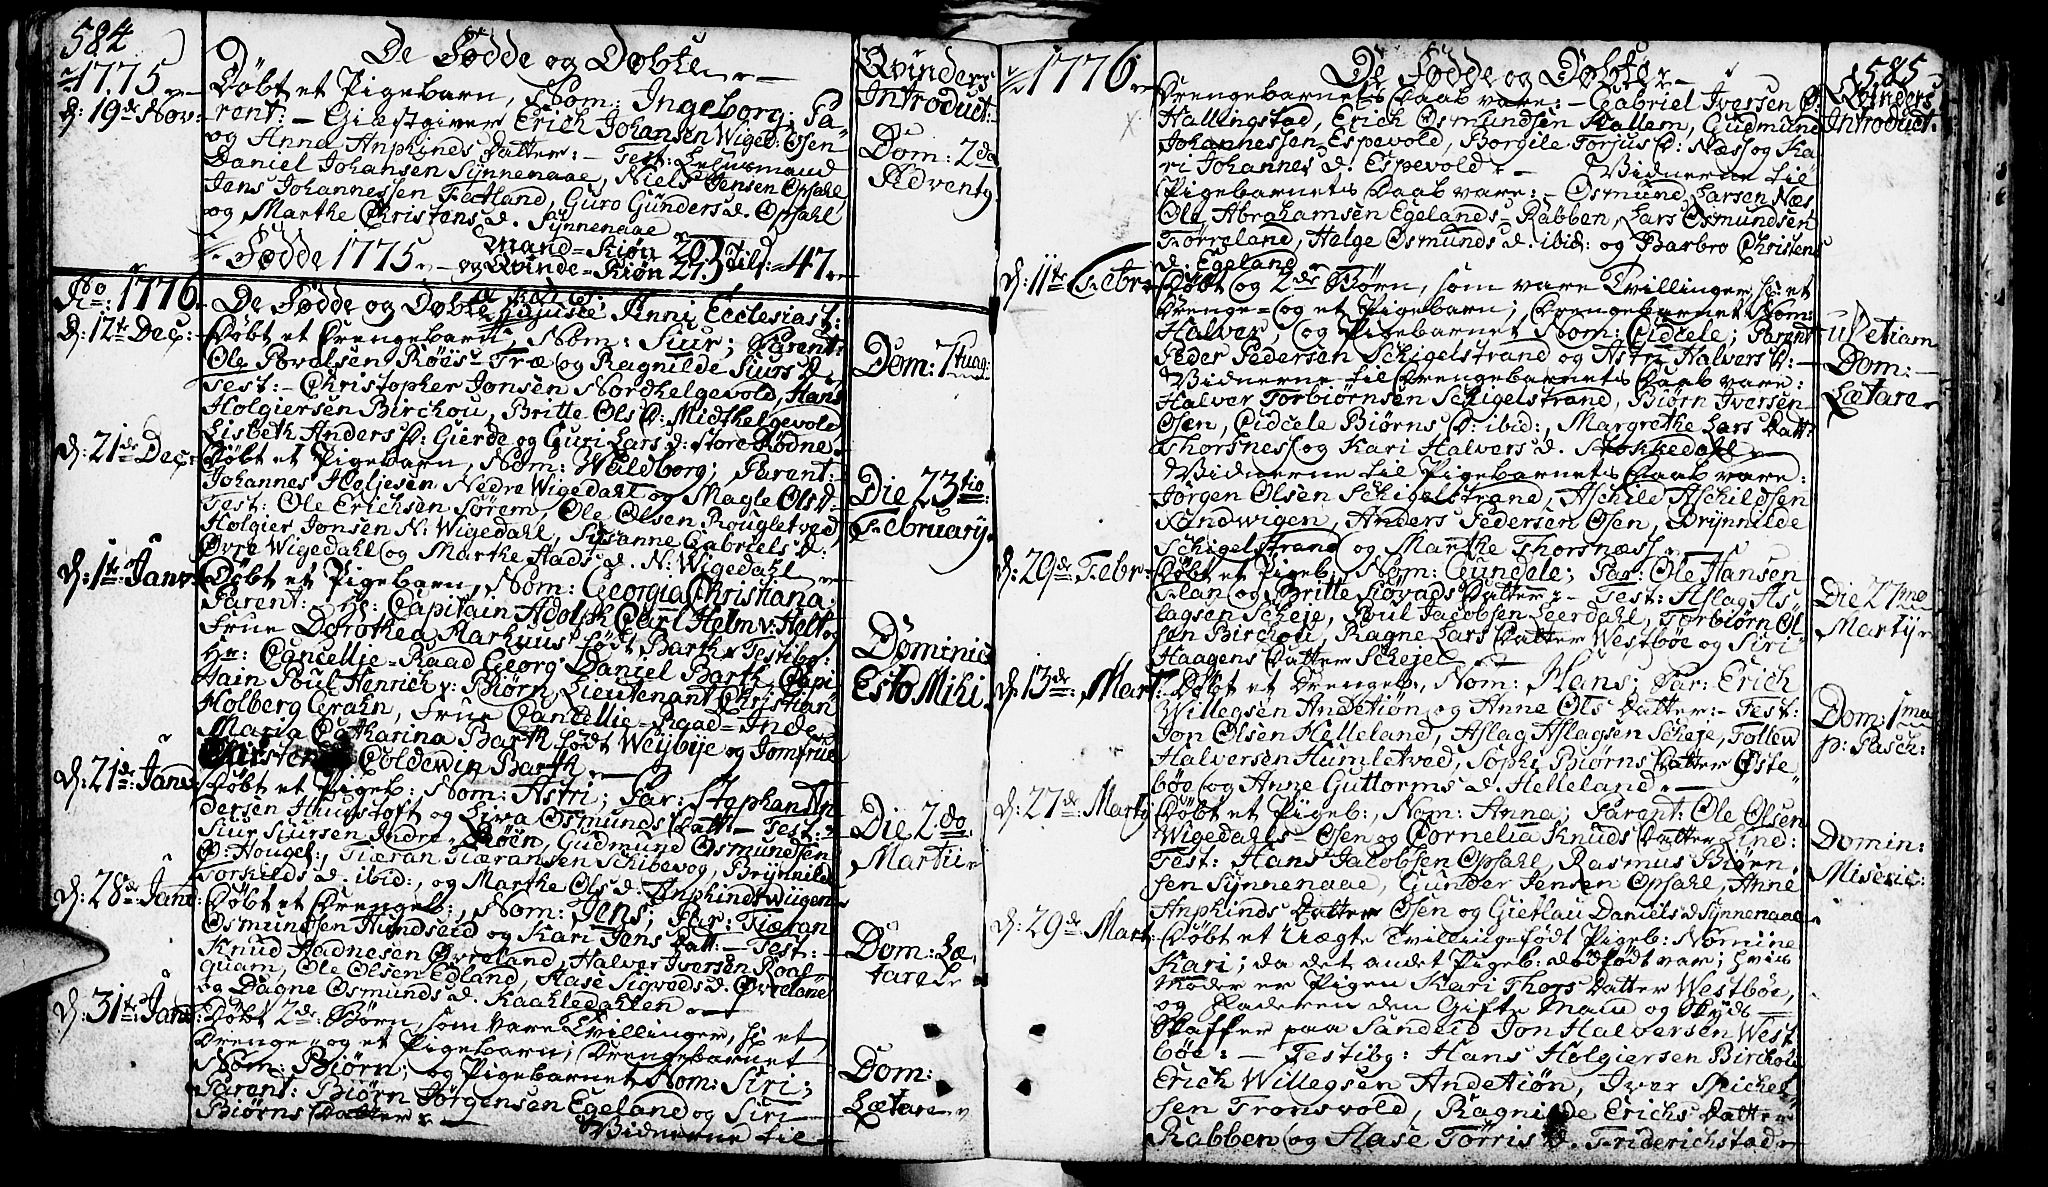 584
De Fødde og Døbte
Qvinders
Introduct:
1775
d: 19de Nov:
Døbt et Pigebarn, Nom: Ingeborg; Pa-
rent: Giestgiver Erich Johansen Wiged: Osen
og Anna Anphines Datter: Test: Lehnsmand
Daniel Johansen Synnenaae, Niels Jensen Opsahl
Jens Johannessen Fatland, Guro Gunders d. Opsahl
og Marthe Christens d. Synnenaae
Dom: 2da
Adventq
Fødde 1775 Mand-Kiøn 20
og Qvinde-Kiøn 27 tils: 47
Ao: 1776
De Fødde og Døbte Anni Ecclesiast:
d: 12te Dec:
Døbt et Drengebarn, Nom: Siur; Parent:
Ole Povelsen Røeis-Træ og Ragnilde Siurs d.
Test: Christopher Jonsen Nordhelgevold, Hans
Holgiersen Birchou, Britte Ols D: Midthelgevold
Lisbeth Anders D: Gierde og Guri Lars d: Store Rødne
Dom: 7tuag:
d: 21de Dec:
Døbt et Pigebarn, Nom: Waldborg; Parent:
Johannes Holjesen Nedre Wigedahl og Magle Ols D:
Test: Ole Erichsen Sørem, Ole Olsen Rougletved
Holgier Jonsen N: Wigedahl, Susanne Gabriels d:
Øvre Wigedahl og Marthe Hads d. N: Wigedahl
Die 23tio:
Februarij
d: 1te Janv:
Døbt et Pigebarn, Nom: Georgia Christiana;
Parent: Hr: Capitain Adolph Carl Helm v: Holt og
Frue Dorothea Marhuus født Barth Testibq:
Hr: Cancellie-Raad Georg Daniel Barth, Capi-
tain Poul Henrich v: Biørn, Lieutenant Christian
Holberg Grahn, Frue Cancellie-Raad-Inde
Maria Catharina Barth født Weybye og Jomfrue
Coldewin Barth
Dominic:
Esto Mihi
d: 21de Janv:
Døbt et Pigeb: Nom: Astri; Par: Stephan An-
dersen Huustoft og Siva Osmunds Datt: Test:
Siur Siursen Indre-Røen, Gudmund Osmundsen
Ø: Houget, Tiæran Tiæransen Schibevog, Brynnilde
Torkilds d. ibid:, og Marthe Ols d. Anphindswiigen
Die 2do.
Martii
d: 28de Janv:
Døbt et Drengeb:, Nom: Jens; Par: Tiæran
Osmundsen Hundseid og Kari Jens Datt: Test:
Knud Hadnesen Øvreland, Halver Iversen Roal-
quam, Ole Olsen Edland, Aase Sigvods d. Øvreland
og Dagne Osmunds d. Kaahledahlen
Dom: Læ-
tare
d: 31te Janv:
Døbt 2de Børn, som vare Tvillinger, 1 et
Drenge- og et Pigebarn; Drengebarnet
Nom: Biørn; og Pigebarnet Nom: Siri;
Parent: Biørn Jørgensen Egeland og Siri
Biørns Datter
Vidnerne til
Dom:
Lætare
1776
De Fødde og Døbte
585
Qvinders
Introduct:
Drengebarnets Daab vare: Gabriel Iversen Ø:
Hallingstad, Erich Osmundsen Hallem, Gudmund
Johannessen Espevold, Borgile Torjus D: Næss og Ka-
ri Johannes d. Espevold. Vidnerne til
Pigebarnets Daab vare: Osmund Larsen Næs
Ole Abrahamsen Egelands-Rabben, Lars Osmundsen
Førreland, Helge Osmunds d. ibid: og Barbro Christens
d. Egeland
d: 11te Febr:
Døbt og 2de Børn, som vare Tvillinger, 1 et
Drenge- og et Pigebarn; Drengebarnet Nom:
Halver, og Pigebarnet Nom: Cidcele; Parent:
Peder Pedersen Schigelstrand og Astri Halvers D:
Vidnerne til Drengebarnets Daab vare:
Halver Torbiørnsen Schigelstrand, Biørn Iversen
Osen, Cidcele Biørns D: ibid:, Margrethe Lars Datt:
Thorsness og Kari Halvers d. Stokkedahl
Vidnerne til Pigebarnets Daab vare:
Jørgen Olsen Schigelstrand, Aschild Aschildsen
Sandwigen, Anders Pedersen Osen, Brynnilde
Schigelstrand og Marthe Thorsnæss
uvetiam
Dom:
Lætare
d: 29de Febr:
Døbt et Pigeb, Nom: Gundele; Par: Ole Hansen
Flan og Britte Siovads Datter. Test: Aslag As-
lagsen Scheje, Poul Jacobsen Leerdahl, Torbiørn Ol-
sen Birchou, Ragne Lars Datter Westbøe og Siri
Haagens Datter Schejel
Die 27me
Martij
d: 13de: Mart:
Døbt et Drengeb:, Nom: Hans; Par: Erich
Willegsen Andetiøn og Anne Ols Datter: Test:
Jon Olsen Helleland, Aslag Aslagsen Scheje, Tollew
Halversen Humletved, Sophi Biørns Datter Øste-
bøe og Anne Guttorms d. Helleland.
Dom: 1ma
p: Pasch:
d: 27de Martij
Døbt et Pigeb:, Nom: Anna; Parent: Ole Olsen
Wigedahls-Osen og Cornelia Knuds Datter Lind:
Test: Hans Jacobsen Opsahl, Rasmus Biørn-
sen Synnenaae, Gunder Jensen Opsahl, Anne
Anphinds Datter Osen og Gietlau Daniels d Synnenaae
Domin:
Miseric:
d: 29de Mart:
Døbt et Uægte Tvilling-født Pigeb: Nomine
Kari; da det andet Pigeb: dødfødt var; hvis
Moder er Pigen Kari Thors Datter Westbøe,
og Faderen den Gifte Mand og Skyds-
Skaffer paa Sandeid Jon Halversen West-
bøe: Testibq: Hans Holgiersen Birchou
Erich Willegsen Andetiøn, Iver Michel-
sen Tronsvold, Ragnilde Erichs Datter
Rabben og Aase Tørris d. Friderichstad